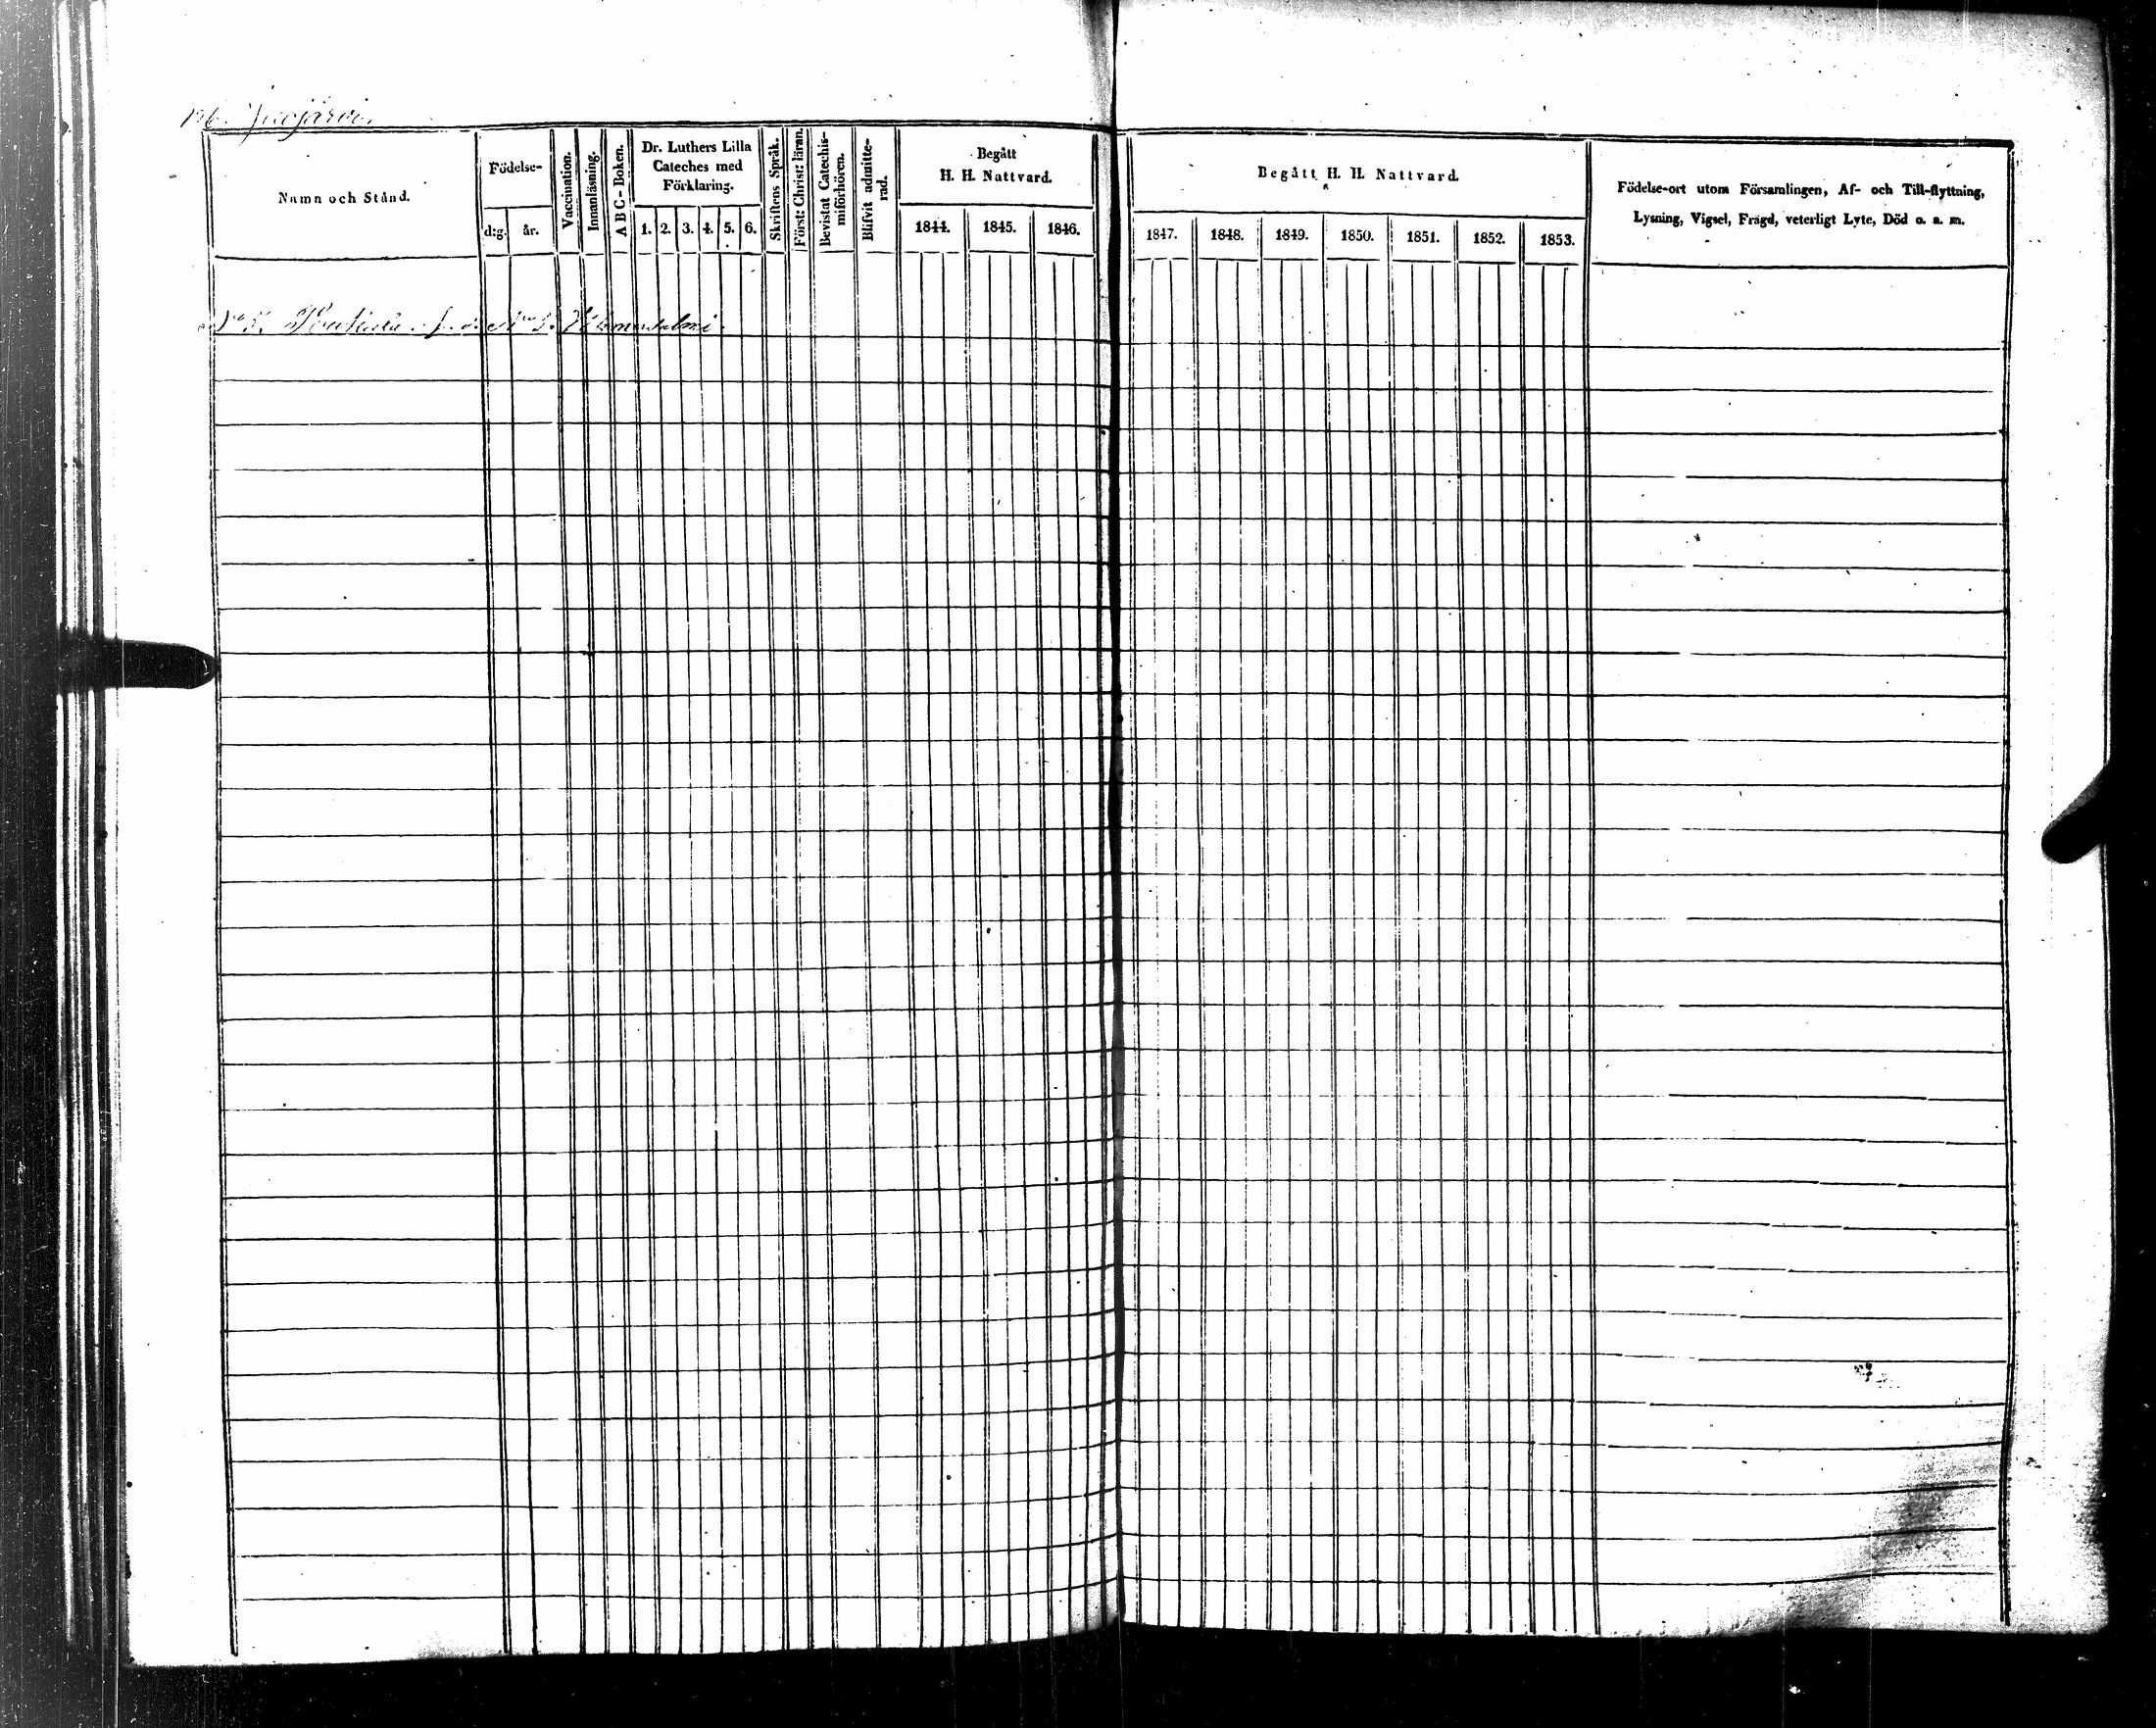 Namn och Stånd.
Födelse-
d:g. år.
Vaccination.
Innanläsning.
A B C - Boken.
Dr. Luthers Lilla
Cateches med
Förklaring.
1. 2. 3. 4. 5. 6.
Skriftens Språk.
Först: Christ: läran.
Bevistat Catechis-
miförhören.
Blifvit admitte-
rad.
Begått
H. H. Nattvard.
1844. 1845. 1846.
Begått H. H. Nattvard.
1847. 1848. 1849. 1850. 1851. 1852. 1853.
Födelse-ort utom Församlingen, Af- och Till-flyttning,
Lysning, Vigsel, Frägd, veterligt Lyte, Död o. s. m.